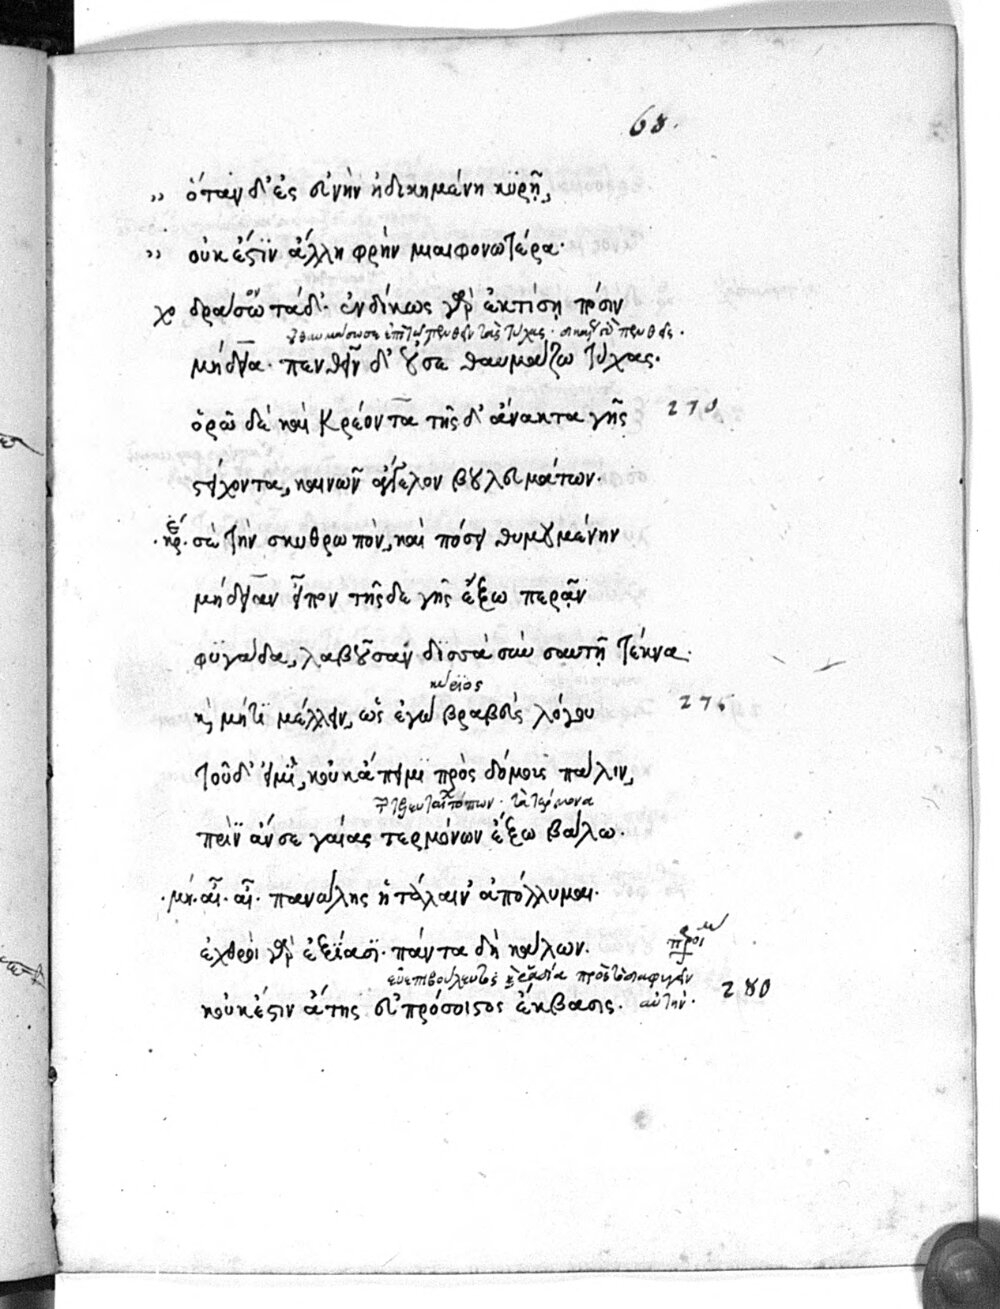 68.
,, ὅταν δ' ἐς εὐνὴν ἠδικημένη κυρῇ,
,, οὐκ ἔστιν ἄλλη φρὴν μιαιφονωτέρα·
χο δράσω τάδ'· ἐνδίκως γὰρ ἐκτίσῃ πόσιν
μήδεια· πενθεῖν δ' οὔ σε θαυμάζω τύχας·
ὁρῶ δὲ καὶ Κρέοντα τῆσδ' ἄνακτα γῆς 270
στείχοντα, καινῶν ἄγγελον βουλευμάτων·
κρ. σὲ τὴν σκυθρωπὸν, καὶ πόσει θυμουμένην
μήδειαν εἶπον τῆσδε γῆς ἔξω περᾶν
φυγάδα, λαβοῦσαν δισσὰ σὺν σαυτῇ τέκνα·
καὶ μή τι μέλλειν, ὡς ἐγὼ βραβεὺς λόγου 275
τοῦδ' εἰμὶ, κοὐκ ἄπειμι πρὸς δόμους πάλιν,
πρὶν ἄν σε γαίας τερμόνων ἔξω βάλω·
μή· αἲ· αἲ· πανώλης ἡ τάλαιν' ἀπόλλυμαι·
ἐχθροὶ γὰρ ἐξιᾶσι· πάντα δὴ κάλων·
κοὐκ ἔστιν ἄτης εὐπρόσοιστος ἔκβασις· αὐτήν· 280